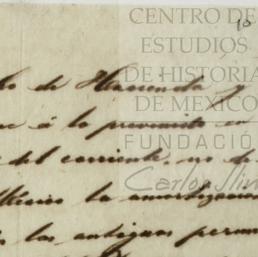 CENTRO DE
ESTUDIOS
DE HISTORIA
DE MÉXICO
FUNDACIÓ
Carlos Slim
10
de Hacienda y
á lo prevenido en
del corriente, no de
México la amortizacion
los antiguos